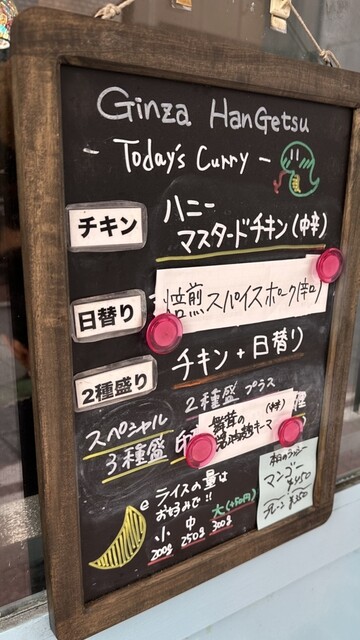 Ginza HanGetsu
- Today's Curry -
チキン
ハニー
マスタードチキン(中辛)
日替り
焙煎スパイスポーク(辛口)
2種盛り
チキン + 日替り
スペシャル
3種盛
2種盛 プラス
舞茸の (中辛)
鶏キーマ
ライスの量は
お好みで!!
小 中 大(+50円)
200g 250g 300g
本日のラッシー
マンゴー
¥450
プレーン ¥350